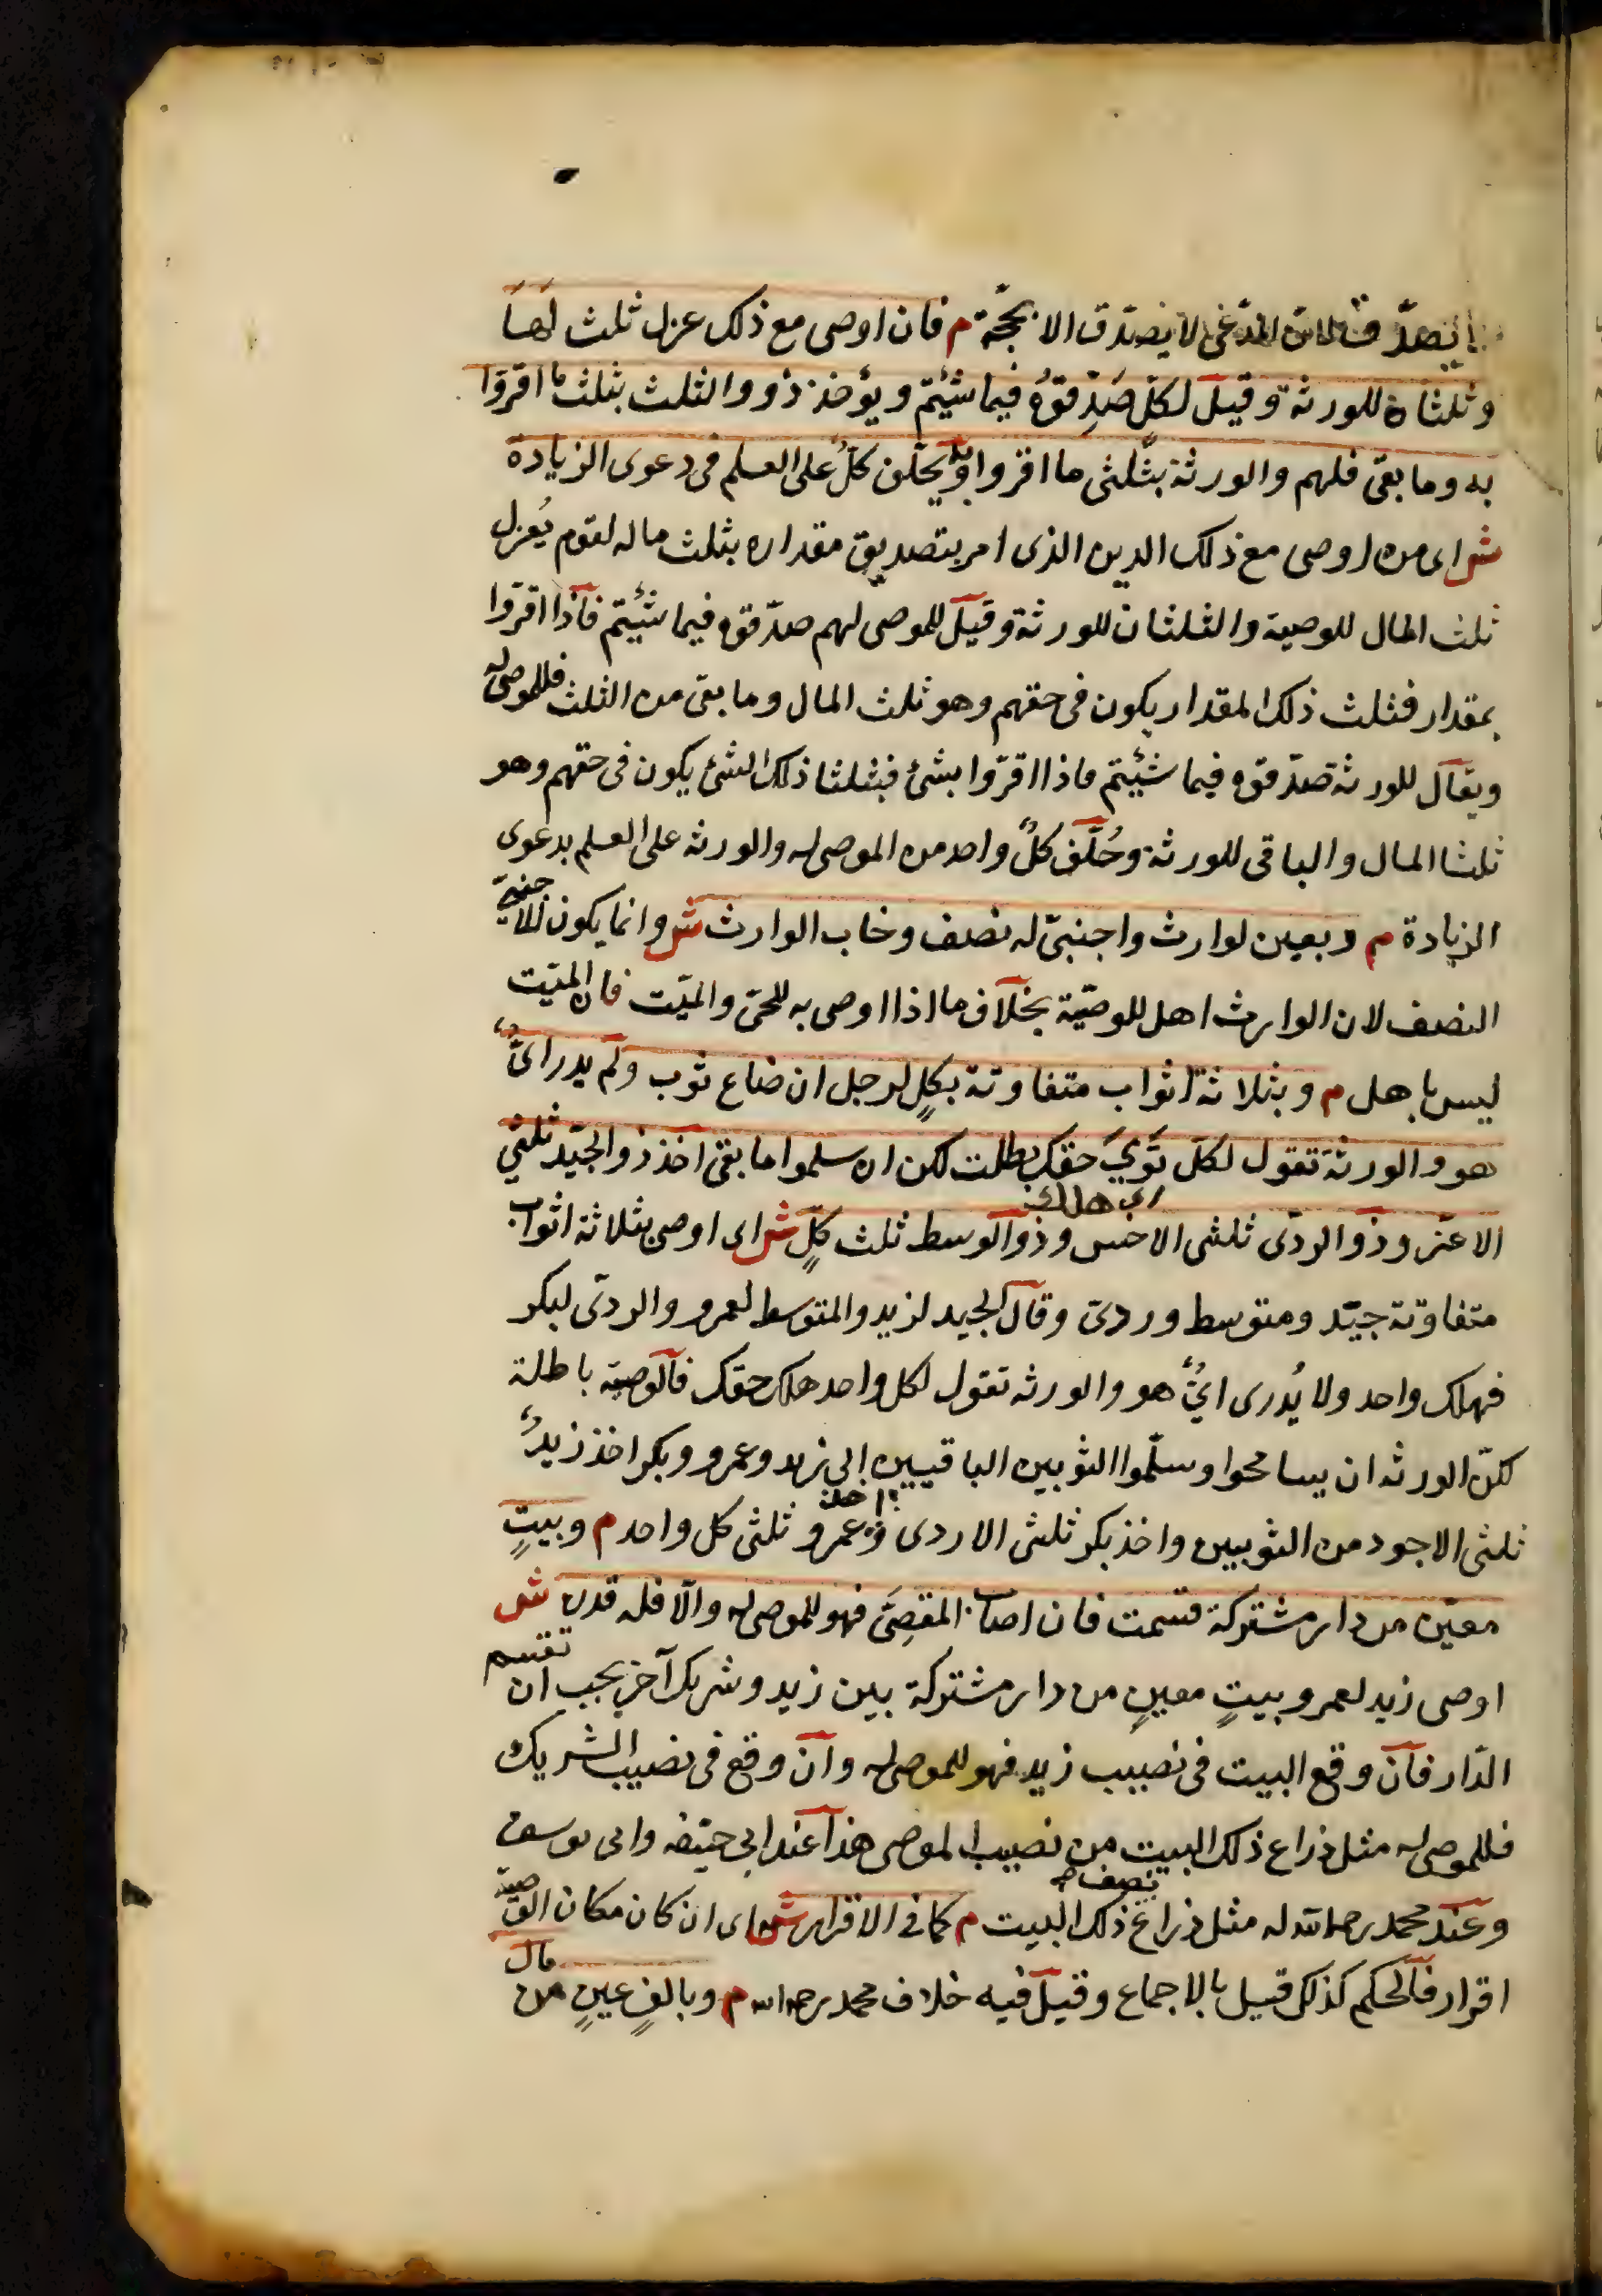 يصدق لان المدعى لا يصدق الا بحجة م فان اوصى مع ذلك عزل ثلث لها
وثلثان للورثة وقيل لكل صَدِّقوُه فيما شئتم ويؤخذ ذو والثلث بثلث ما اقروا
به وما بقى فلهم والورثة بثلثى ما اقروا به ويحلف كلٌ على العلم فى دعوى الزيادة
ش اى من اوصى مع ذلك الدين الذى امر بتصديق مقداره بثلث ماله لقوم يُعزل
ثلث المال للوصية والثلثان للورثة وقيل للموصى لهم صدّقوه فيما شئيتم فاذا اقروا
بمقدار فثلث ذلك المقدار يكون فى حقهم وهو ثلث المال وما بقى من الثلث فللموصى له
ويقال للورثة صدّقوه فيما شئيتم فاذا اقرّوا بشئ فثلثا ذلك الشئ يكون فى حقهم وهو
ثلثا المال والباقى للورثة وحُلّف كلٌ واحد من الموصى له والورثه على العلم بدعوى
الزيادة م وبعين لوارث واجنبىّ له نصف وخاب الوارث ش وانما يكون للاجنبىّ
النصف لان الوارث اهل للوصيّة بخلاف ما اذا اوصى به للحىّ والميّت فان الميّت
ليس باهل م وبثلاثة اثواب متفاوتة بكلٍ لرجل ان ضاع ثوب ولم يدر اىٌّ
هو والورثة تقول لكل تَوِىَ حقك بطلت لكن ان سلموا ما بقى اخذ ذو الجيّد ثلثى
اى هلك
الاعز وذو الردى ثلثى الاخس وذو الوسط ثلث كلٍّ ش اى اوصى بثلاثة اثواب
متفاوتة جيّد ومتوسط وردىّ وقال الجيد لزيد والمتوسط لعمرو والردىّ لبكر
فهلك واحد ولا يُدرى اىٌّ هو والورثه تقول لكل واحد هلك حقك فالوصية باطلة
لكنّ الورثه ان يسامحوا وسلّموا الثوبين الباقيين الى زيد وعمرو وبكر اخذ زيدٌ
ثلثى الاجود من الثوبين واخذ بكر ثلثى الاردى وعمرو ثلثى كل واحد م وبيتٍ
معيّن من دار مشتركة قسمت فان اصاب المقصِىَّ فهو للموصى له والّا فله قدره ش
اوصى زيد لعمرو بيتٍ معينٍ من دار مشتركة بين زيد وشريك آخر يجب ان تقسم
الدّار فان وقع البيت فى نصيب زيد فهو للموصى له وان وقع فى نصيب الشريك
فللموصى له مثل ذراع ذلك البيت من نصيب الموصى هذا عند ابى حنيفه وابى يوسف
وعند محمد رحمه الله له مثل نصف ذراع ذلك البيت م كما فى الاقرار ش اى ان كان مكان الوصيّه
اقرار فالحكم كذلك قيل بالاجماع وقيل فيه خلاف محمد رحمه الله م وبالفٍ عينٍ من مال